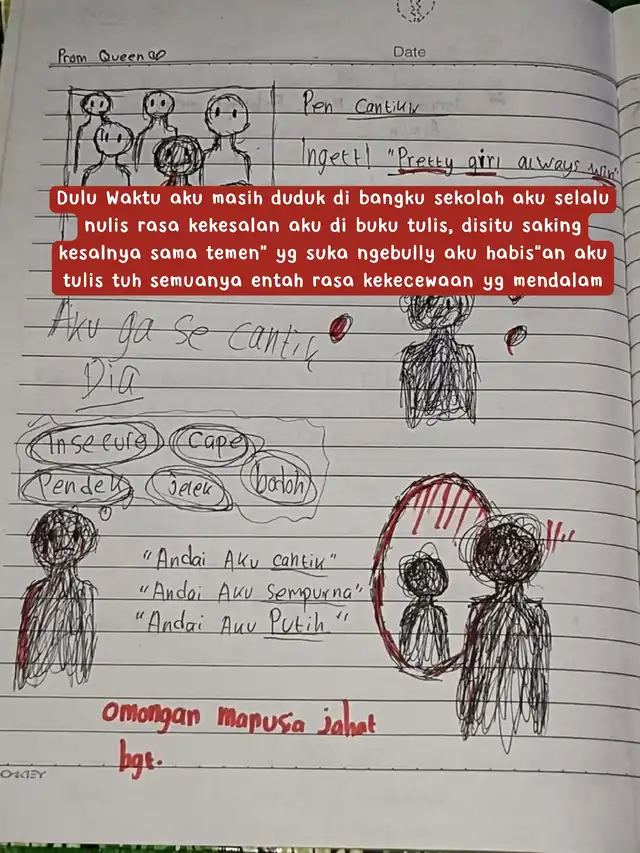 Prom Queen
Date
Pen Cantikk
Inget!! "Pretty girl always win"
Dulu Waktu aku masih duduk di bangku sekolah aku selalu
nulis rasa kekesalan aku di buku tulis, disitu saking
kesalnya sama temen" yg suka ngebully aku habis"an aku
tulis tuh semuanya entah rasa kekecewaan yg mendalam
Aku ga se cantik
Dia
Insecure Cape
Pendek Jelek bodoh
"Andai Aku cantik"
"Andai Aku Sempurna"
"Andai Aku Putih"
Omongan manusia jahat
bgt.